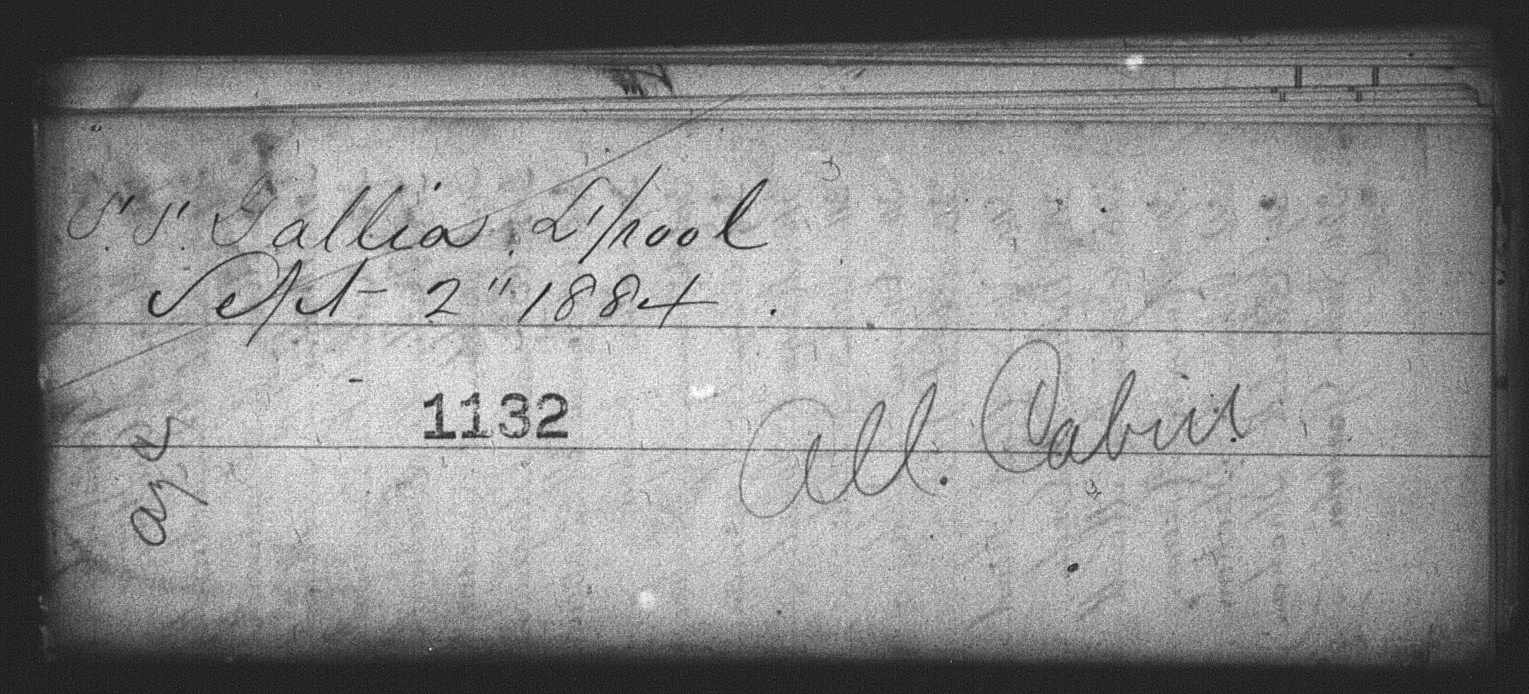 S.S. Gallia. L'pool
Sept 2" 1884.
1132
All. Cabin
age